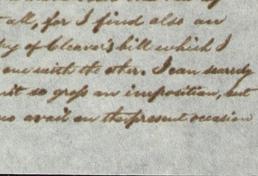 all, for I find also an
of Cleaver's bill which I
one with the other. I can scarcely
so gross an imposition, but
avail on the present occasion